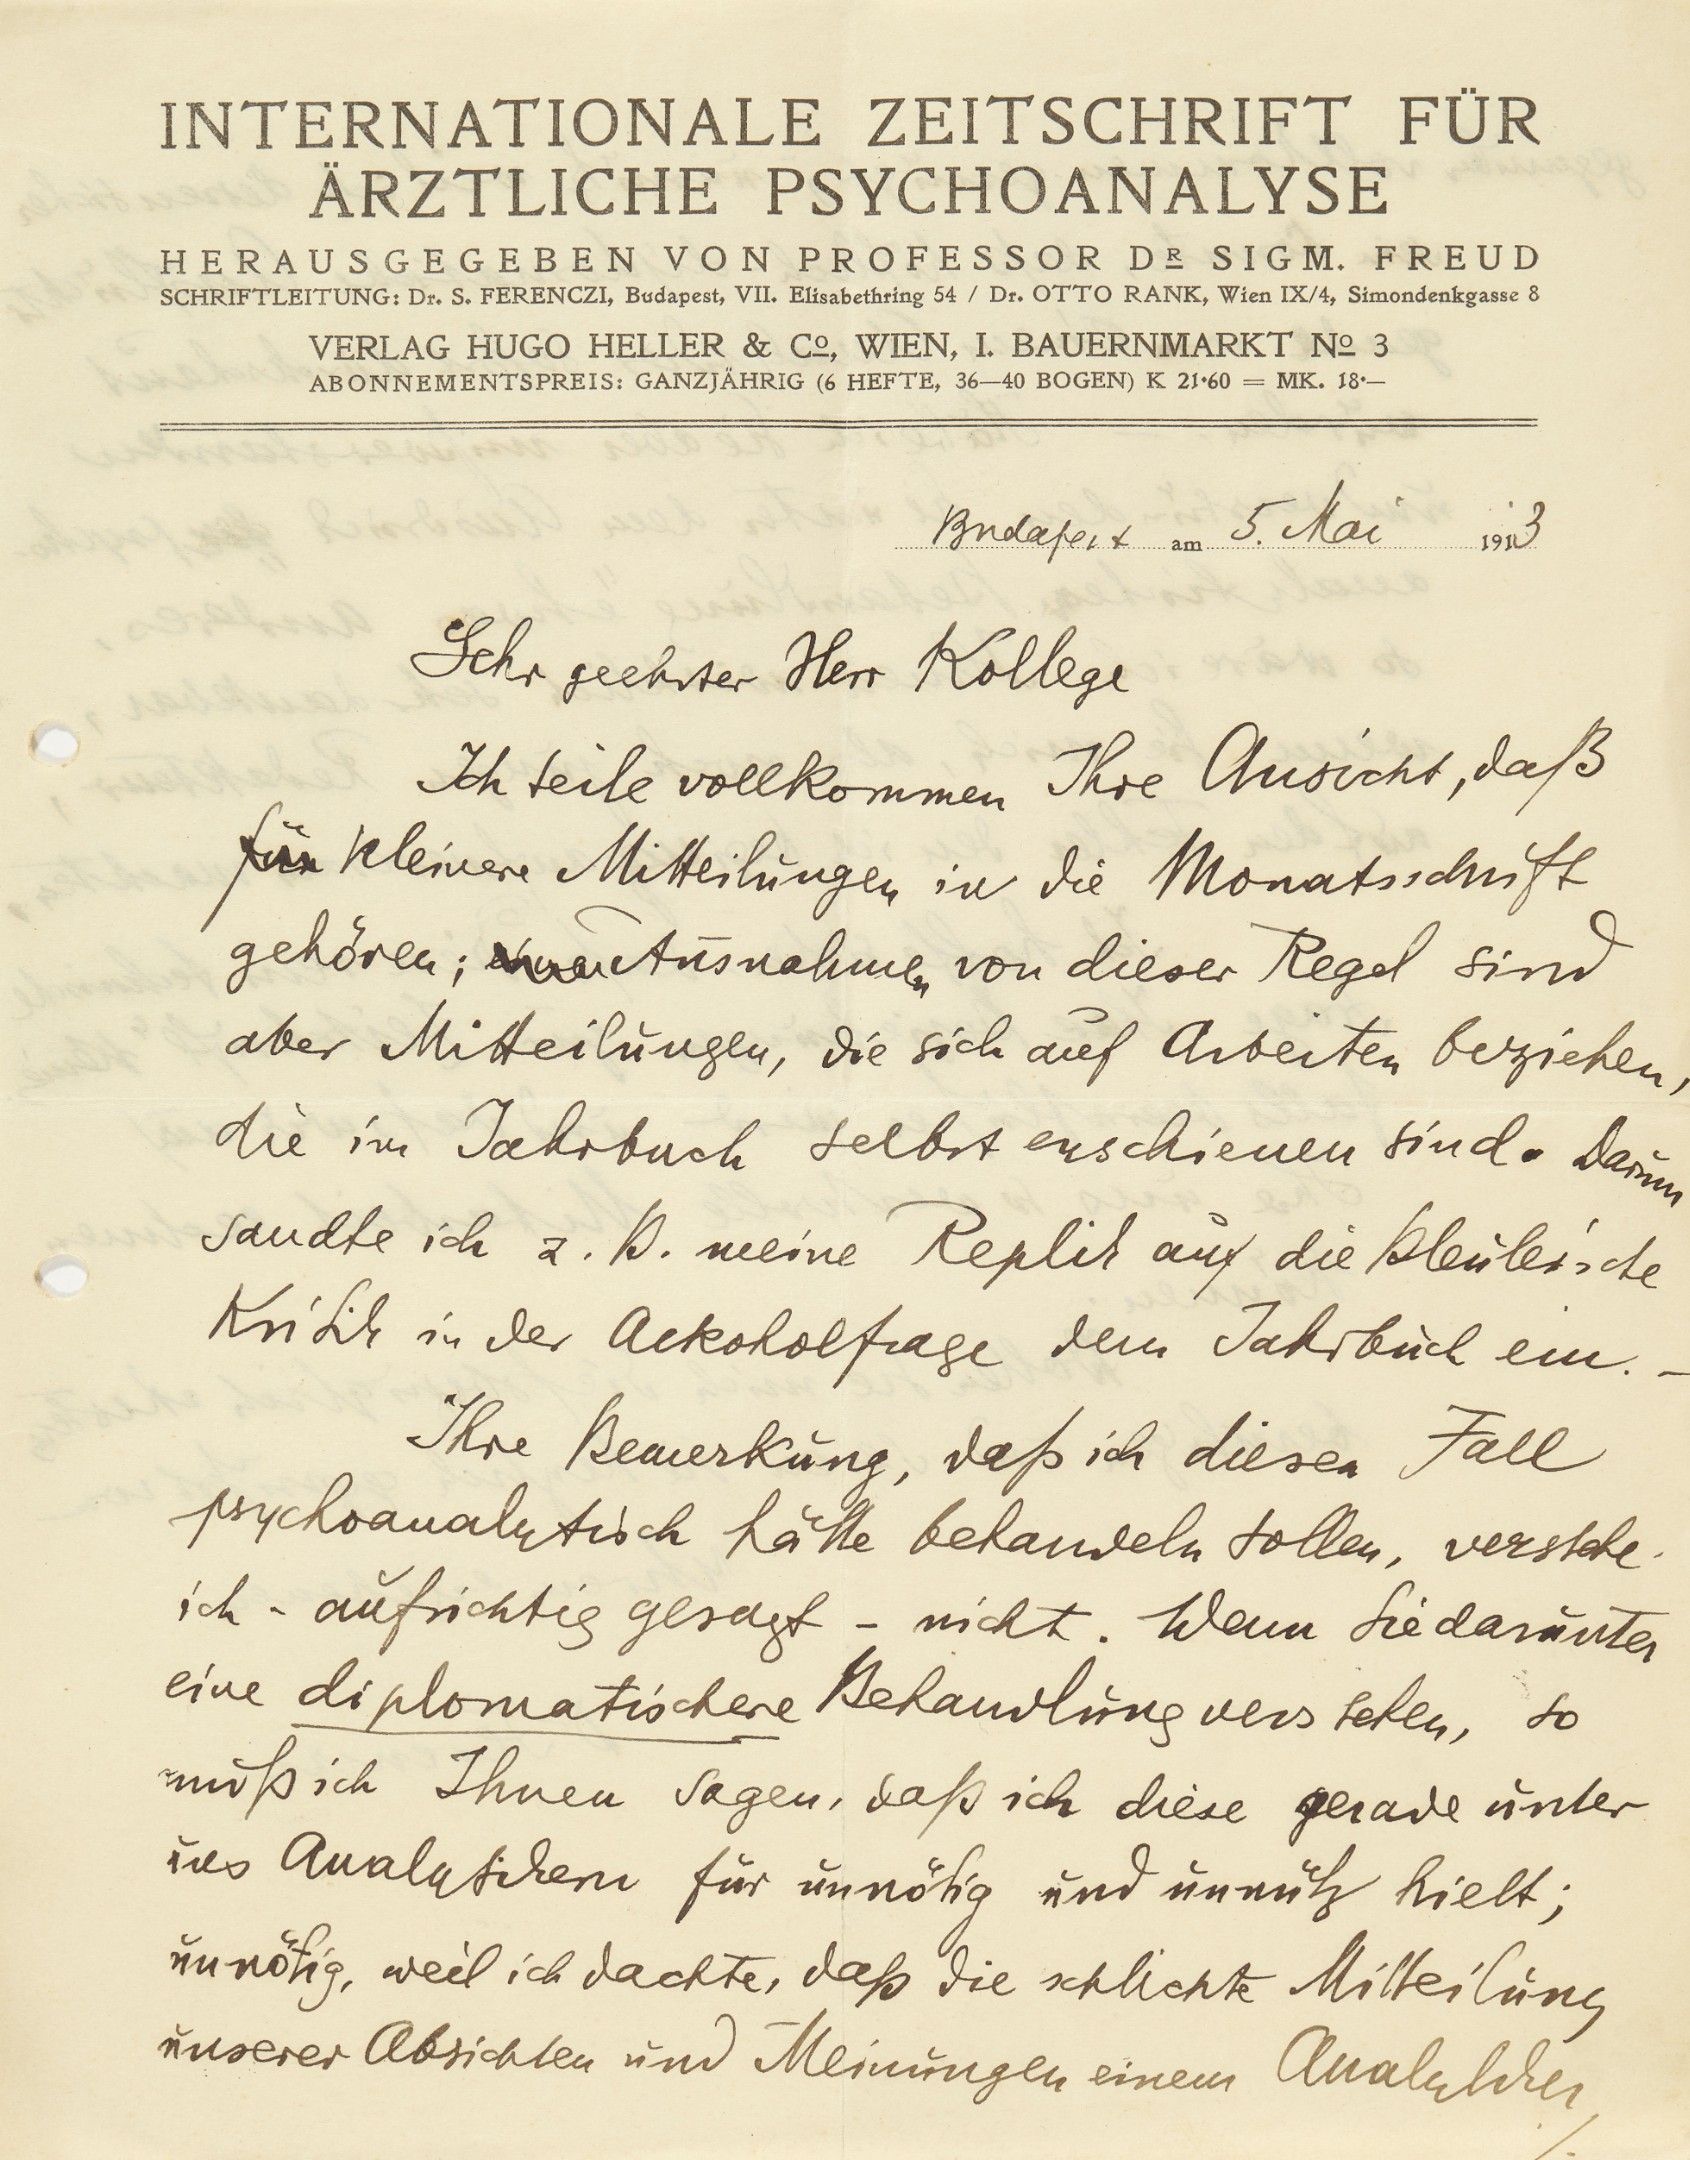 INTERNATIONALE ZEITSCHRIFT FÜR
ÄRZTLICHE PSYCHOANALYSE
HERAUSGEGEBEN VON PROFESSOR DR SIGM. FREUD
SCHRIFTLEITUNG: Dr. S. FERENCZI, Budapest, VII. Elisabethring 54 / Dr. OTTO RANK, Wien IX/4, Simondenkgasse 8
VERLAG HUGO HELLER & Co, WIEN, I. BAUERNMARKT No 3
ABONNEMENTSPREIS: GANZJÄHRIG (6 HEFTE, 36—40 BOGEN) K 21·60 = MK. 18·—
Budapest am 5. Mai 1913
Sehr geehrter Herr Kollege
Ich teile vollkommen Ihre Ansicht, daß
für kleinere Mitteilungen in die Monatsschrift
gehören; Ausnahmen von dieser Regel sind
aber Mitteilungen, die sich auf Arbeiten beziehen,
die im Jahrbuch selbst erschienen sind. Darum
sandte ich z. B. meine Replik auf die Bleuler'sche
Kritik in der Alkoholfrage dem Jahrbuch ein. –
Ihre Bemerkung, daß ich diesen Fall
psychoanalytisch hätte behandeln sollen, verstehe
ich - aufrichtig gesagt - nicht. Wenn Sie darunter
eine diplomatischere Behandlung verstehen, so
muß ich Ihnen sagen, daß ich diese gerade unter
uns Analytikern für unnötig und unnütz hielt;
unnötig, weil ich dachte, daß die schlichte Mitteilung
unserer Absichten und Meinungen einem Analytiker
/.